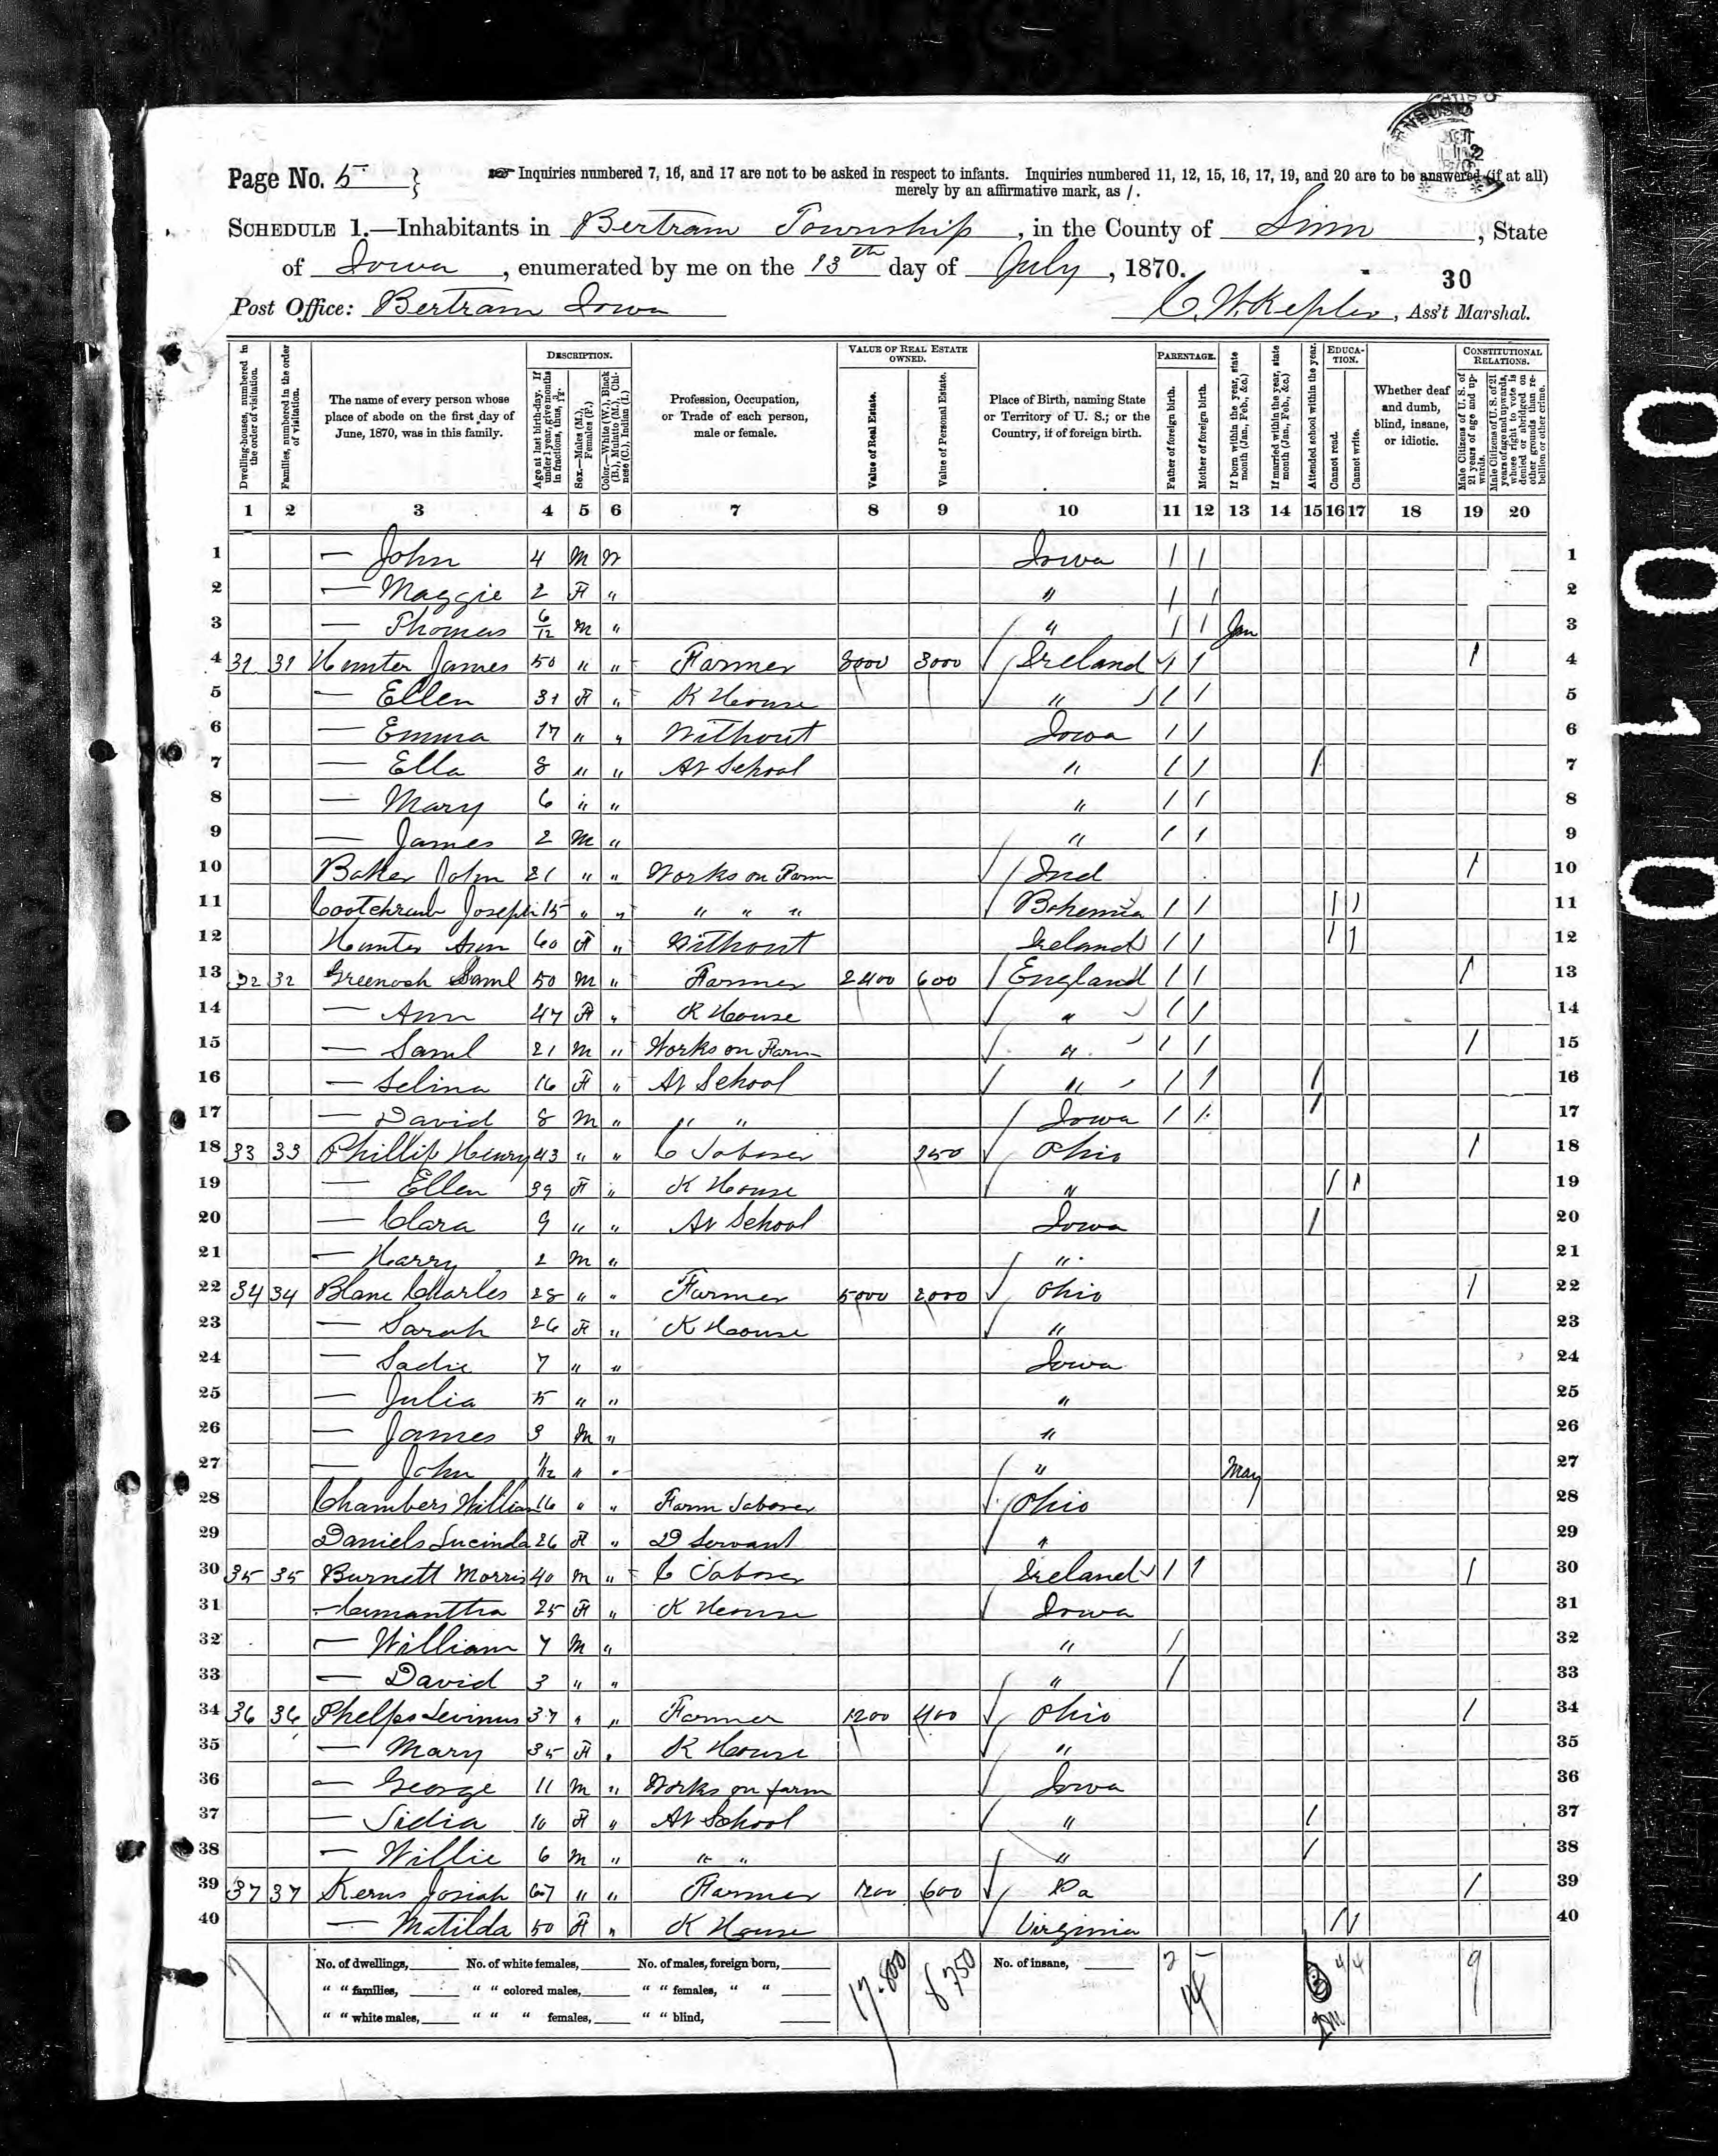 Page No. 5 }
Inquiries numbered 7, 16, and 17 are not to be asked in respect to infants. Inquiries numbered 11, 12, 15, 16, 17, 19, and 20 are to be answered (if at all)
merely by an affirmative mark, as /.
SCHEDULE 1.—Inhabitants in Bertram Township, in the County of Linn, State
of Iowa, enumerated by me on the 13th day of July, 1870.
30
Post Office: Bertram Iowa
C. W. Kepler, Ass't Marshal.
Dwelling-houses, numbered in the order of visitation.
Families, numbered in the order of visitation.
The name of every person whose place of abode on the first day of June, 1870, was in this family.
DESCRIPTION.
Age at last birth-day. If under 1 year, give months in fractions, thus, 3/12.
Sex.—Males (M.), Females (F.)
Color.—White (W.), Black (B.), Mulatto (M.), Chinese (C.), Indian (I.)
Profession, Occupation, or Trade of each person, male or female.
VALUE OF REAL ESTATE OWNED.
Value of Real Estate.
Value of Personal Estate.
Place of Birth, naming State or Territory of U. S.; or the Country, if of foreign birth.
PARENTAGE.
Father of foreign birth.
Mother of foreign birth.
If born within the year, state month (Jan., Feb., &c.)
If married within the year, state month (Jan., Feb., &c.)
Attended school within the year.
EDUCATION.
Cannot read.
Cannot write.
Whether deaf and dumb, blind, insane, or idiotic.
CONSTITUTIONAL RELATIONS.
Male Citizens of U. S. of 21 years of age and upwards.
Male Citizens of U. S. of 21 years of age and upwards, whose right to vote is denied or abridged on other grounds than rebellion or other crime.
1 2 3 4 5 6 7 8 9 10 11 12 13 14 15 16 17 18 19 20
1 — John 4 M W Iowa / / 1
2 — Maggie 2 F " " / / 2
3 — Thomas 6/12 M " " / / Jan 3
4 31 31 Hunter James 50 " " Farmer 8000 3000 Ireland / / / 4
5 — Ellen 31 F " K House " / / 5
6 — Emma 17 " " Without Iowa / / 6
7 — Ella 8 " " At School " / / / 7
8 — Mary 6 " " " / / 8
9 — James 2 M " " / / 9
10 Baker John 21 " " Works on Farm Ind / 10
11 Joseph 15 " " " " " Bohemia / / / / 11
12 Hunter Ann 60 F " Without Ireland / / / / 12
13 32 32 Greenoch Saml 50 M " Farmer 2400 600 England / / / 13
14 — Ann 47 F " K House " / / 14
15 — Saml 21 M " Works on Farm " / / / 15
16 — Selina 16 F " At School " / / / 16
17 — David 8 M " " " Iowa / / / 17
18 33 33 Phillip Henry 43 " " C Laborer 250 Ohio / 18
19 — Ellen 39 F " K House " / / 19
20 — Clara 9 " " At School Iowa / 20
21 — Harry 2 M " " 21
22 34 34 Blane Charles 28 " " Farmer 5000 2000 Ohio / 22
23 — Sarah 26 F " K House " 23
24 — Sadie 7 " " Iowa 24
25 — Julia 5 " " " 25
26 — James 3 M " " 26
27 — John 1/12 " " " May 27
28 Chambers William 16 " " Farm Laborer Ohio 28
29 Daniels Lucinda 26 F " D Servant " 29
30 35 35 Burnett Morris 40 M " C Laborer Ireland / / / 30
31 — Samantha 25 F " K House Iowa 31
32 — William 7 M " " / 32
33 — David 3 " " " / 33
34 36 36 Phelps Levinus 37 " " Farmer 1200 400 Ohio / 34
35 — Mary 35 F " K House " 35
36 — George 11 M " Works on farm Iowa 36
37 — Lidia 10 F " At School " / 37
38 — Willie 6 M " " " " / 38
39 37 37 Kerns Josiah 67 " " Farmer 1200 600 Pa / 39
40 — Matilda 50 F " K House Virginia / / 40
No. of dwellings, No. of white females, No. of males, foreign born, No. of insane,
" " families, " " colored males, " " females, " "
" " white males, " " " females, " " blind,
7 17.800 6750 14 4 4 9
0010